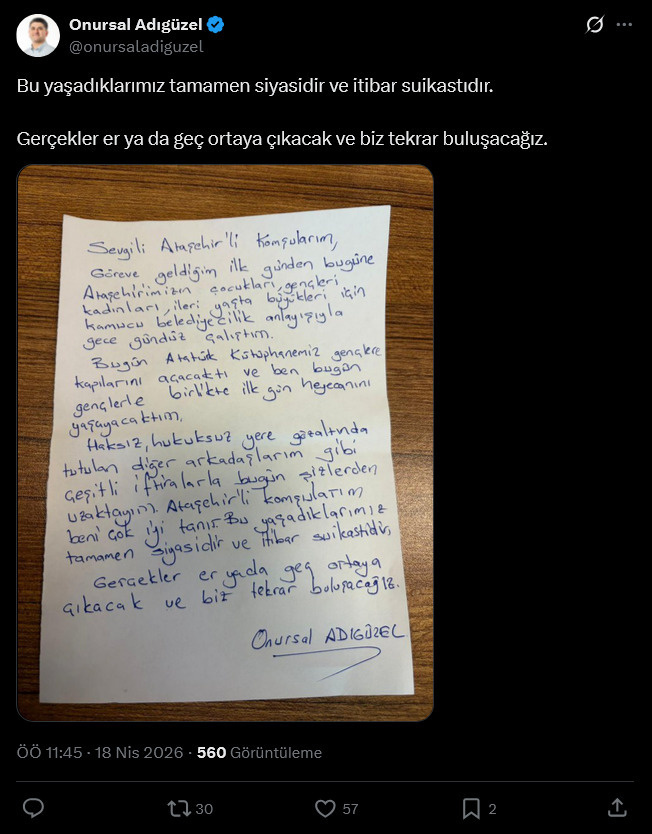 Onursal Adıgüzel
@onursaladiguzel
Bu yaşadıklarımız tamamen siyasidir ve itibar suikastıdır.
Gerçekler er ya da geç ortaya çıkacak ve biz tekrar buluşacağız.
Sevgili Ataşehir'li Komşularım,
Göreve geldiğim ilk günden bugüne
Ataşehirimizin çocukları, gençleri
kadınları, ileri yaşta büyükleri için
kamucu belediyecilik anlayışıyla
gece gündüz çalıştım.
Bugün Atatürk Kütüphanemiz gençlere
kapılarını açacaktı ve ben bugün
gençlerle birlikte ilk gün heyecanını
yaşayacaktım.
Haksız, hukuksuz yere gözaltında
tutulan diğer arkadaşlarım gibi
çeşitli iftiralarla bugün sizlerden
uzaktayım. Ataşehir'li komşularım
beni çok iyi tanır. Bu yaşadıklarımız
tamamen siyasidir ve itibar suikastidir,
Gerçekler er yada geç ortaya
çıkacak ve biz tekrar buluşacağız.
Onursal ADIGÜZEL
ÖÖ 11:45 · 18 Nis 2026 · 560 Görüntüleme
30
57
2